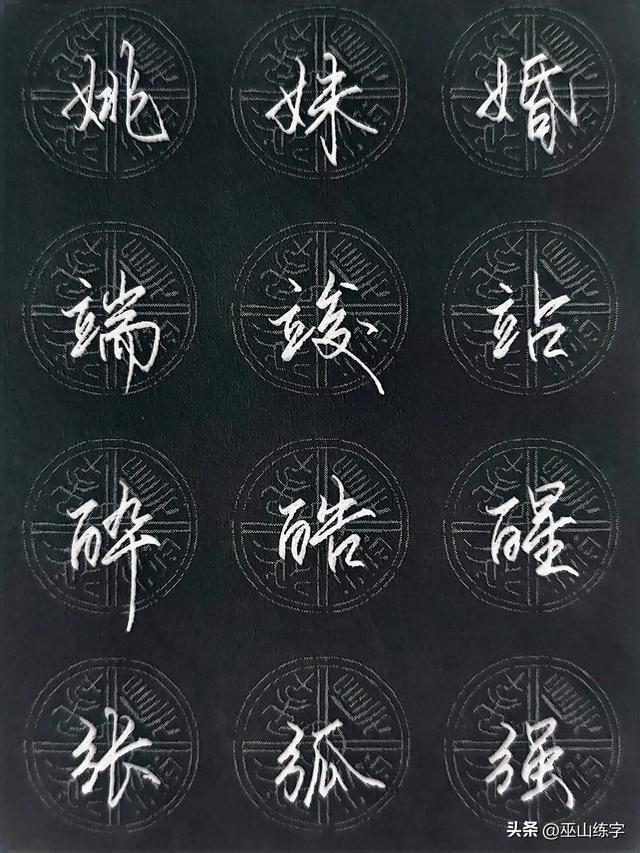 姚妹婚
端竣站
醉酷醒
张弧强
头条 @巫山练字